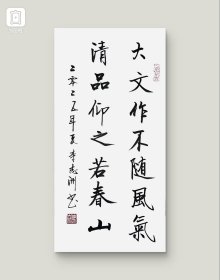 大文作不随風氣
清品仰之若春山
二零二五年夏李志洲书